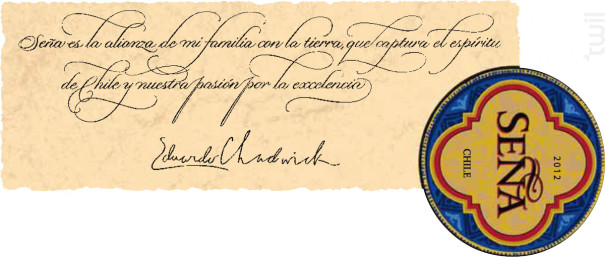 Seña es la alianza de mi familia con la tierra, que captura el espíritu
de Chile y nuestra pasión por la excelencia
Eduardo Chadwick
SEÑA
2012
CHILE
twil